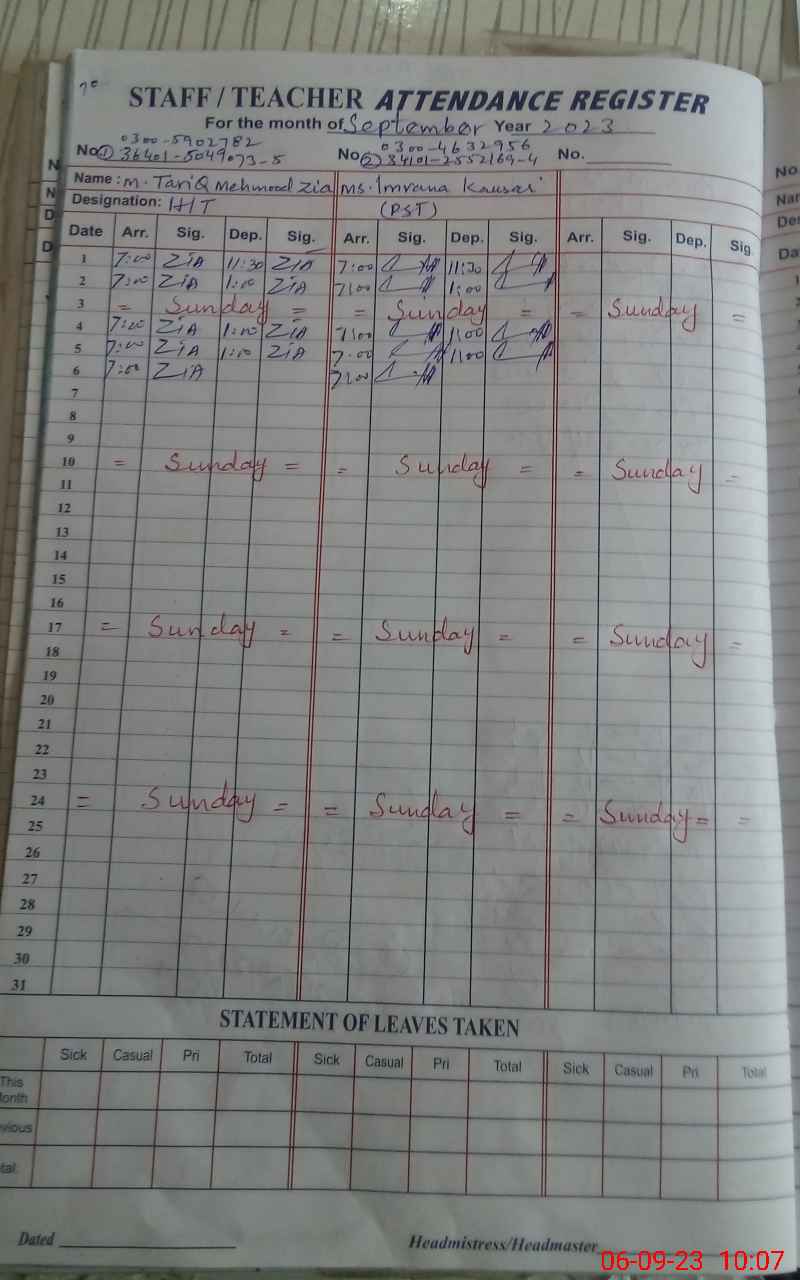 STAFF / TEACHER ATTENDANCE REGISTER
For the month of September Year 2023
0300-5902782 0300-4632956
No ① 36401-5049073-5 No ② 34101-2552169-4 No.
Name : M. TariQ Mehmood Zia Ms. Imrana Kausar
Designation: HT (PST)
Date Arr. Sig. Dep. Sig. Arr. Sig. Dep. Sig. Arr. Sig. Dep. Sig.
1 7:00 ZiA 11:30 ZiA 7:00 11:30
2 7:00 ZiA 1:00 ZiA 7:00 1:00
3 = Sunday = = Sunday = = Sunday =
4 7:00 ZiA 1:00 ZiA 7:00 1:00
5 7:00 ZiA 1:00 ZiA 7:00 1:00
6 7:00 ZiA 7:00
7
8
9
10 = Sunday = = Sunday = = Sunday =
11
12
13
14
15
16
17 = Sunday = = Sunday = = Sunday =
18
19
20
21
22
23
24 = Sunday = = Sunday = = Sunday = =
25
26
27
28
29
30
31
STATEMENT OF LEAVES TAKEN
Sick Casual Pri Total Sick Casual Pri Total Sick Casual Pri Total
This
onth
vious
tal:
Dated Headmistress/Headmaster
06-09-23 10:07